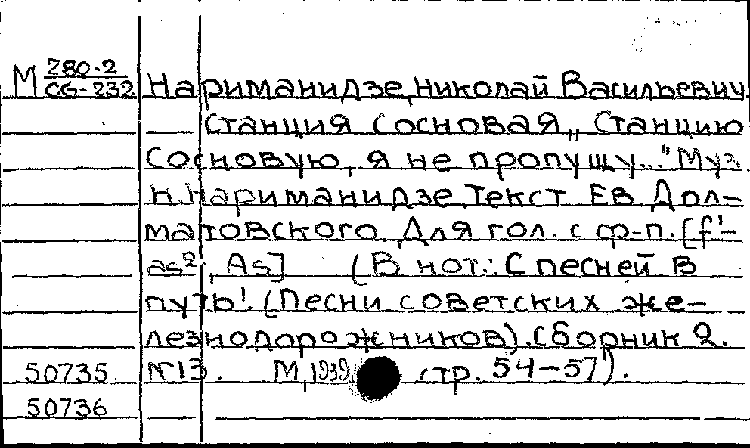 М 280-2 Нариманидзе, Николай Васильевич
СG-232
Станция Сосновая,, Станцию
Сосновую, я не пропущу..." Муз.
Н. Нариманидзе, Текст Ев. Дол-
матовского. Для гол. с ф-п. [f'-
as², As] (В нот.: С песней в
путь! (Песни советских же-
лезнодорожников). Сборник 2.
50735 N13. М, 1939, стр. 54-57).
50736